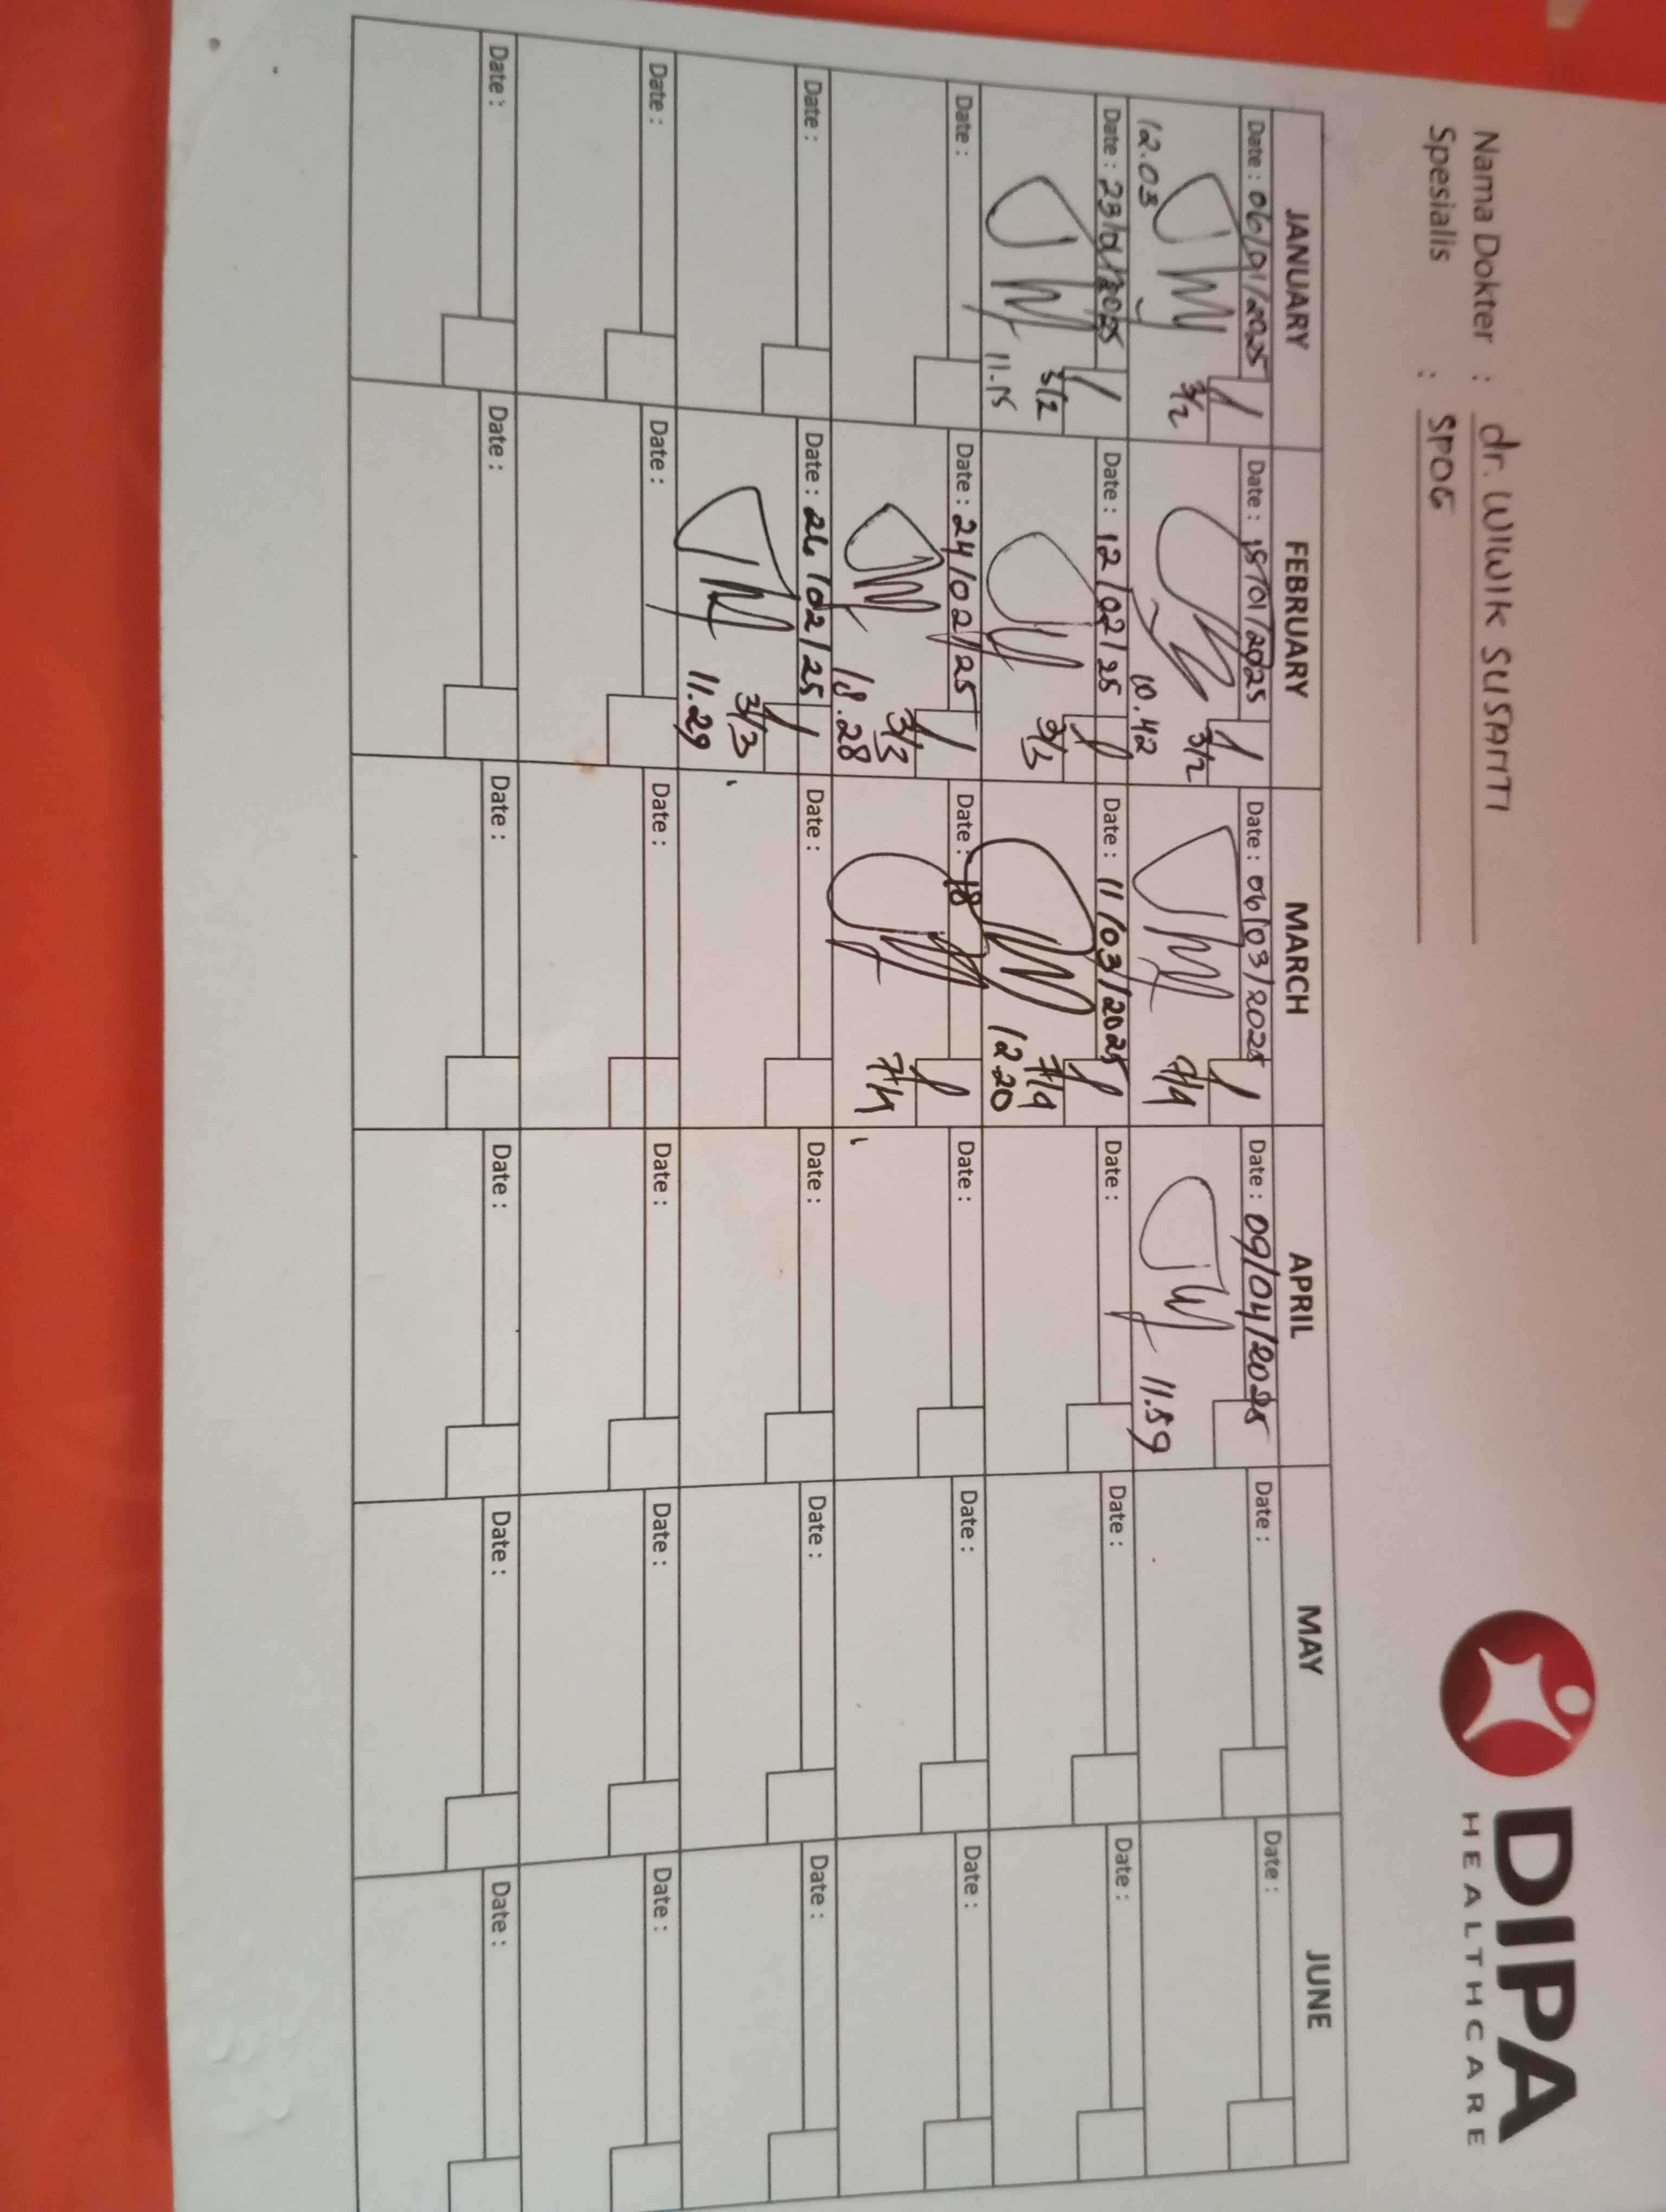 DIPA
HEALTHCARE
Nama Dokter : dr. WIWIK SUSANTI
Spesialis : SPOG
JANUARY FEBRUARY MARCH APRIL MAY JUNE
Date : 06/01/2025 Date : 15/01/2025 Date : 06/03/2025 Date : 09/04/2025 Date : Date :
12.03 3/2 10.42 3/2 7/4 11.59
Date : 23/01/2025 Date : 12/02/25 Date : 11/03/2025 Date : Date : Date :
3/2 11.15 3/3 7/4 12.20
Date : Date : 24/02/25 Date : 18 Date : Date : Date :
3/3 18.28 7/4
Date : Date : 26/02/25 Date : Date : Date : Date :
3/3 11.29
Date : Date : Date : Date : Date : Date :
Date : Date : Date : Date : Date : Date :